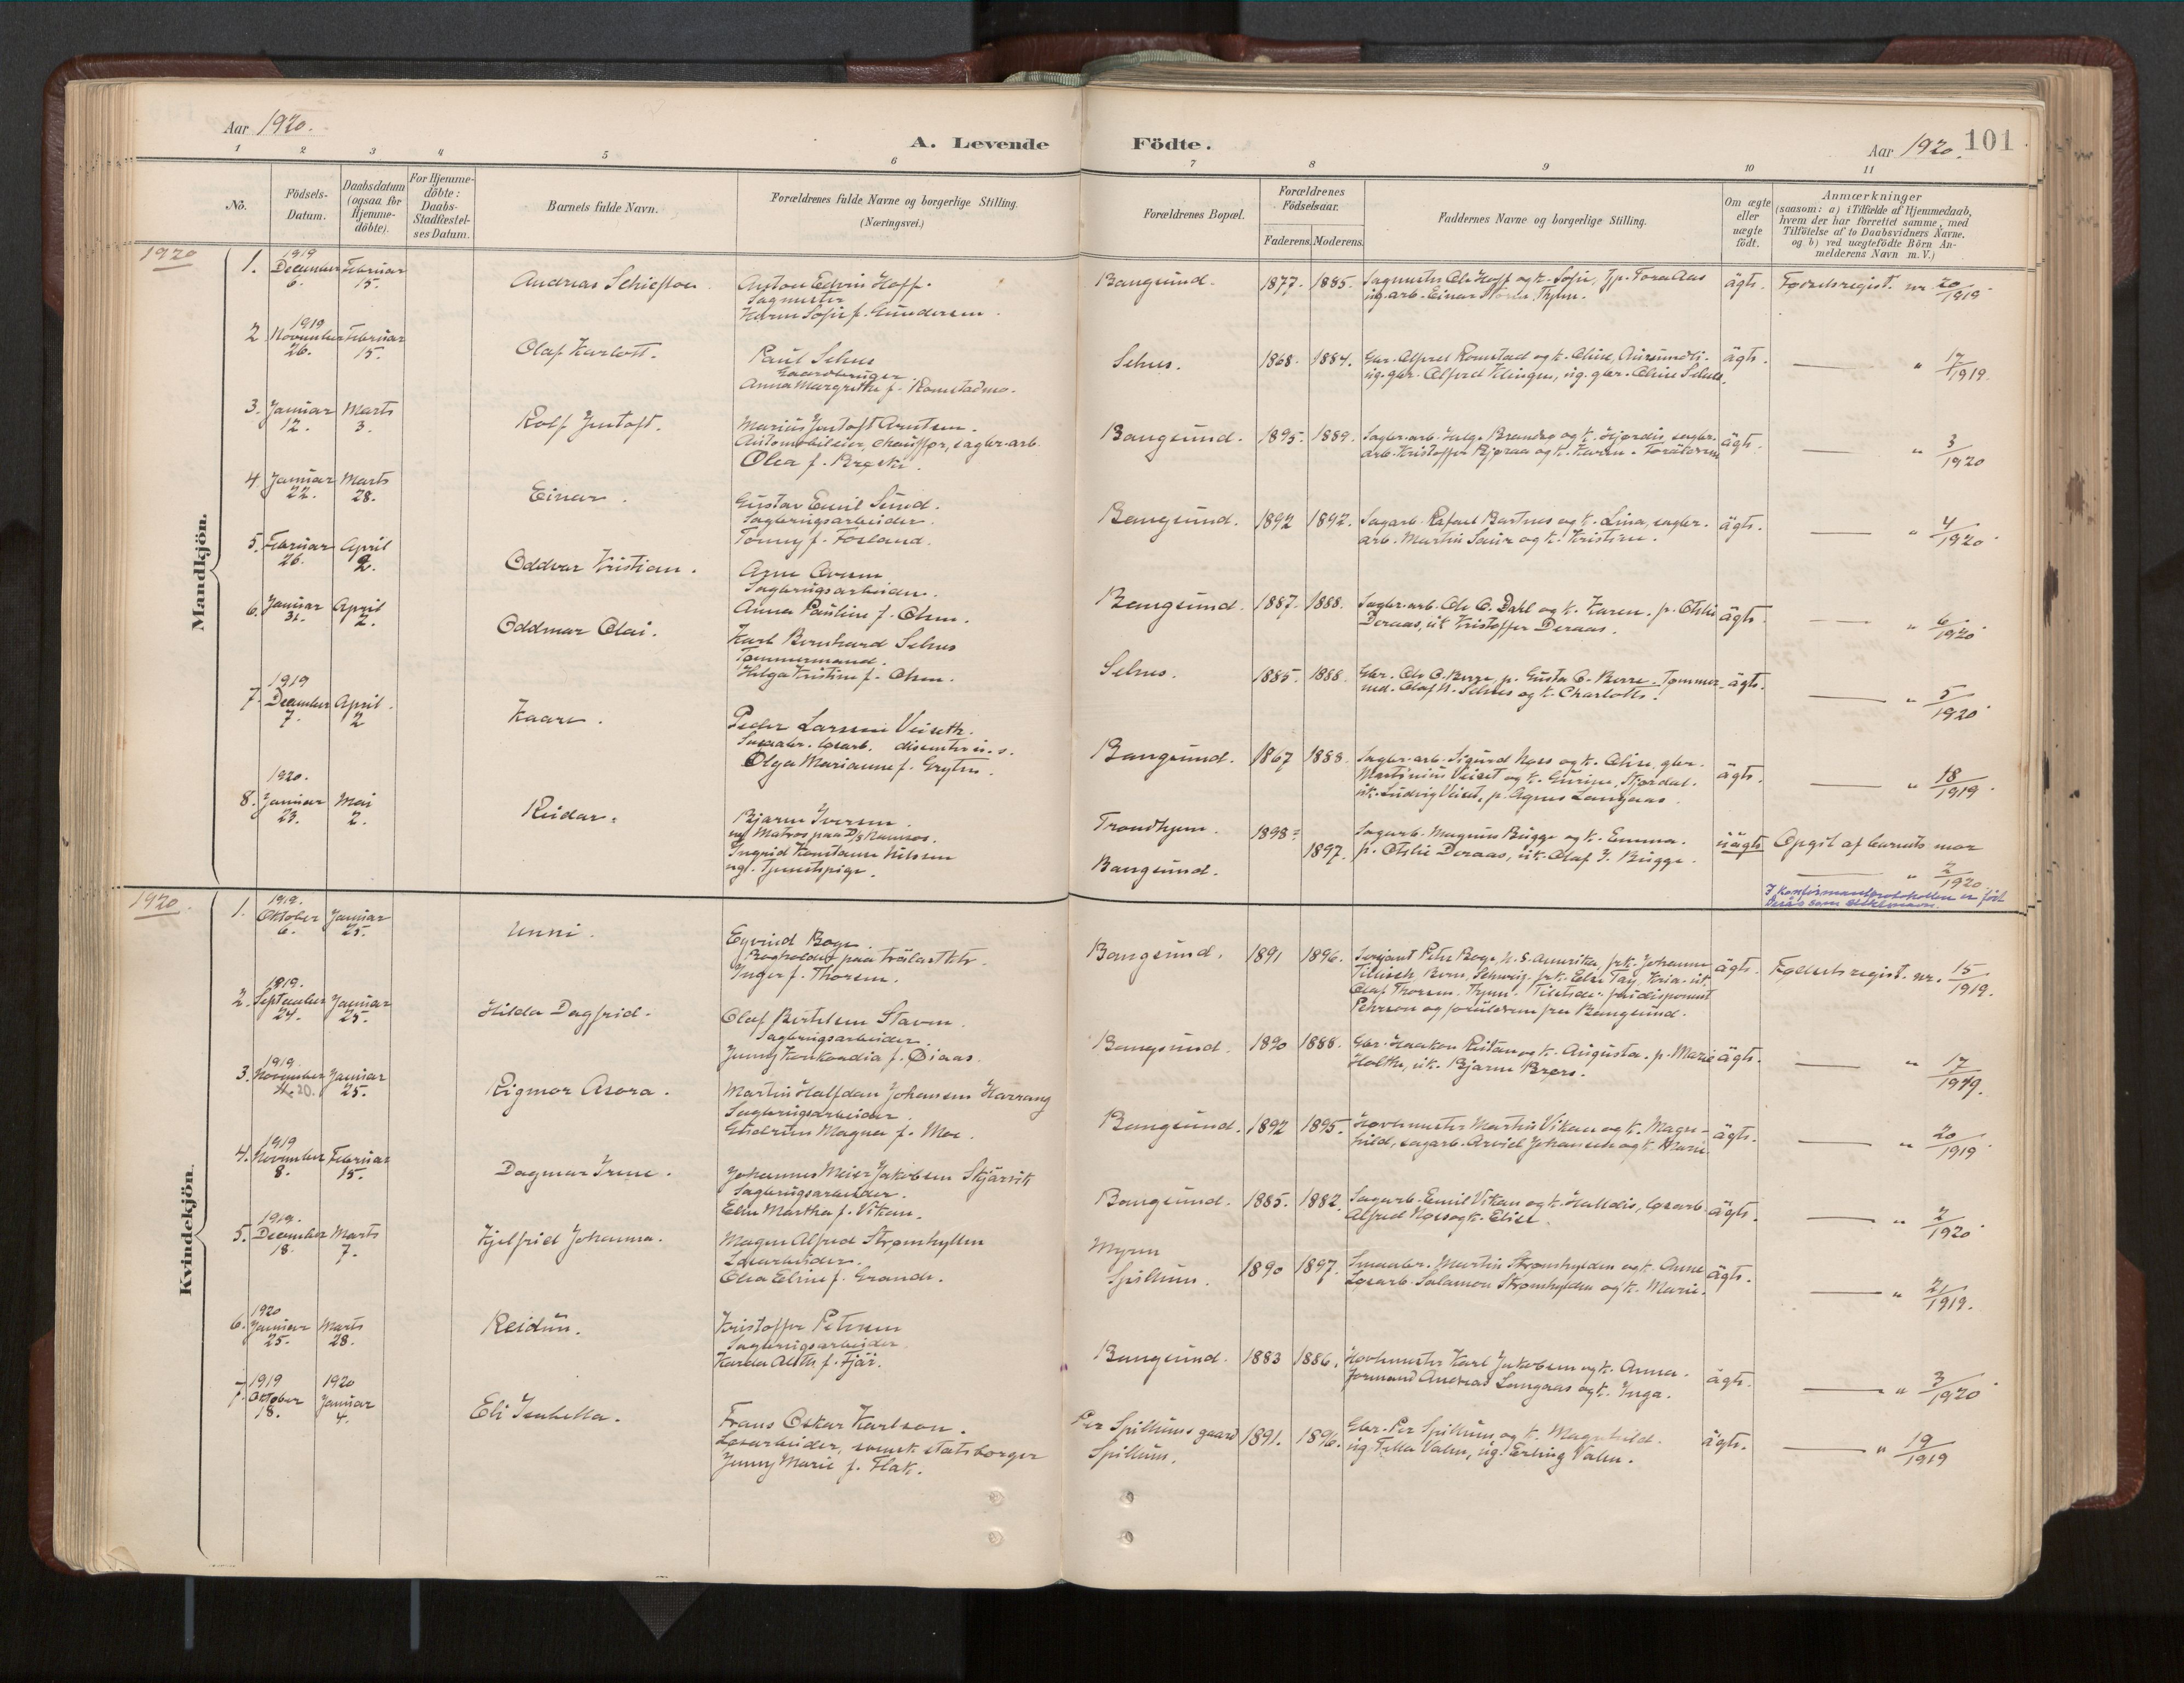 Aar 1920.
A. Levende
Födte.
Aar 1920.
101
1 2 3 4 5 6 7 8 9 10 11
No.
Födsels-
Datum.
Daabsdatum
(ogsaa for
Hjemme-
döbte).
For Hjemme-
döbte:
Daabs-
Stadfæstel-
ses Datum.
Barnets fulde Navn.
Forældrenes fulde Navne og borgerlige Stilling.
(Næringsvei.)
Forældrenes Bopæl.
Forældrenes
Födselsaar.
Faderens. Moderens.
Faddernes Navne og borgerlige Stilling.
Om ægte
eller
uægte
födt.
Anmærkninger
(saasom: a) i Tilfælde af Hjemmedaab,
hvem der har forrettet samme, med
Tilföielse af to Daabsvidners Navne.
og b) ved uægtefödte Börn An-
melderens Navn m. V.)
Mandkjön.
1920
1. 1919 December 6. Februar 15.
Andreas
Anton Edvin Hoff.
Sagmester
Karen Sofie f. Gundersen.
Bangsund. 1877. 1885.
Sagmester Ole Hoff og k. Sofie, Tora Aas
ug. arb. Einar
ägte.
Fødselsregist. nr 20/1919
2. 1919 November 26. Februar 15.
Olaf Karlott.
Paul Selnes
Gaardbruger.
Anna Margrethe f. Romstadmo.
Selnes. 1868. 1884.
Gbr. Alfred Romstad og k. Oline,
ug. gbr. Alfred Klingen, ug. gbr. Oline Selnes.
ägte.
" 17/1919.
3. Januar 12. Marts 3.
Rolf Justoft.
Marius Justoft Arntsen.
Automobileier, chauffør, sagbr. arb.
Olea f.
Bangsund. 1895. 1889.
Sagbr. arb. Helge og k. Hjørdis, sagbr.
arb. Kristoffer og k. Karen. Forældrene
ägte.
" 3/1920
4. Januar 22. Marts 28.
Einar.
Gustav Emil Sund.
Sagbrugsarbeider.
Tonny f. Fosland.
Bangsund. 1892 1892.
Sagarb. Rafael Bartnes og k. Lina, sagbr.
arb. Martin og k. Kristine.
ägte.
" 4/1920
5. Februar 26. April 2.
Oddvar Kristian.
Arne
Sagbrugsarbeider.
Anna Pauline f. Olsen.
Bangsund. 1887. 1888.
Sagbr. arb. Ole O. Dahl og k. Karen. p. Otelie
Deraas, uk Kristoffer Deraas.
ägte.
" 6/1920
6. Januar 31. April 2.
Oddmar Olai.
Karl Bernhard Selnes
Tømmermand.
Helga Kristine f. Olsen.
Selnes. 1885. 1888.
Gbr. Ole O. Berre, p. Gusta O. Berre. Tømmer-
md. Olaf N. Selnes og k. Charlotte.
ägte.
" 5/1920
7. 1919 December 7. April 2
Kaare.
Peder Larsen Veiseth.
Olga Marianne f. Gryten.
Bangsund. 1867 1888.
Sagbr. arb. Sigurd Næss og k. Oline, gbr.
Martinius Veiset og k. Gurine, Stjørdal.
uk. Ludvig Veiset, p. Agnes Langaas.
ägte.
" 18/1919
8. 1920. Januar 23. Mai 2.
Reidar.
Bjarne Iversen.
ug. Matros paa D/S Namsos.
Ingrid Konstance Nilssen
ug. Tjenestepige.
Trondhjem.
Bangsund.
1898 1897.
Sagarb. Magnus Bugge og k. Emma.
p. Otelie Deraas, uk. Olaf Bugge.
uägte
Opgit af barnets mor
" 2/1920.
I konfirmantprotokollen er ført
Kvindekjön.
1920.
1. 1919. Oktober 6. Januar 25.
Unni.
Eyvind Boge.
Bogholder paa trælastktr.
Inger f. Thorsen.
Bangsund. 1891 1896.
Serjant Peter Boge, N. S. Amerika, frk. Johanne
Bern, Schweiz. frk. Else Kria. uk.
Olaf Thorsen,
Pehrson og forældrene fra Bangsund.
ägte.
Fødselsregist. nr. 15/1919.
2. 1919. September 24. Januar 25.
Hilda Dagfrid.
Olaf Bertelsen Staven.
Sagbrugsarbeider.
Jenny Konkordia f. Øiaas.
Bangsund. 1890 1888.
Gbr. Haakon og k. Augusta. p. Marie
Holthe, uk. Bjarne
ägte.
" 17/1919.
3. 1919. November 20. Januar 25.
Rigmor Asora.
Martin Halfdan Johansen Harrang
Sagbrugsarbeider.
Gudrun Magna f. Moe.
Bangsund. 1892 1895.
Hovmester Martin Vikan og k. Magn-
hild, sagarb. Arvid Johansen og k. Marie
ägte.
" 20/1919
4. 1919 November 8. Februar 15.
Dagmar Irene.
Johannes Meier Jakobsen Skjärvik
Sagbrugsarbeider.
Ellen Martha f. Vikan.
Bangsund. 1885. 1882.
Sagarb. Emil Vikan og k. Halldis, løsarb
Alfred og k. Elise.
ägte.
" 2/1920
5. 1919. December 18. Marts 7.
Kjelfrid Johanna.
Magne Alfred Strømhylden
Løsarbeider.
Olea Eline f. Grande.
Myren
Spillum.
1890 1897.
Smaabr. Martin Strømhylden og k. Anne
Løsarb. Salamon Strømhylden og k. Marie.
ägte.
" 21/1919.
6. 1920 Januar 25. Marts 28.
Reidun.
Kristoffer Petersen
Sagbrugsarbeider
f. Fjär.
Bangsund. 1883 1886.
Hovmester Karl Jakobsen og k. Anna.
Formand Andreas Langaas og k. Inga.
ägte.
" 3/1920
7. 1919 Oktober 18. 1920 Januar 4.
Eli Isabella.
Frans Oskar Karlson.
Løsarbeider, svensk statsborger
Jenny Marie f. Flak.
Per Spillums gaard
Spillum.
1891. 1896.
Gbr. Per Spillum og k. Magnhild.
ug. Valen, ug. Erling Valen.
ägte.
" 19/1919